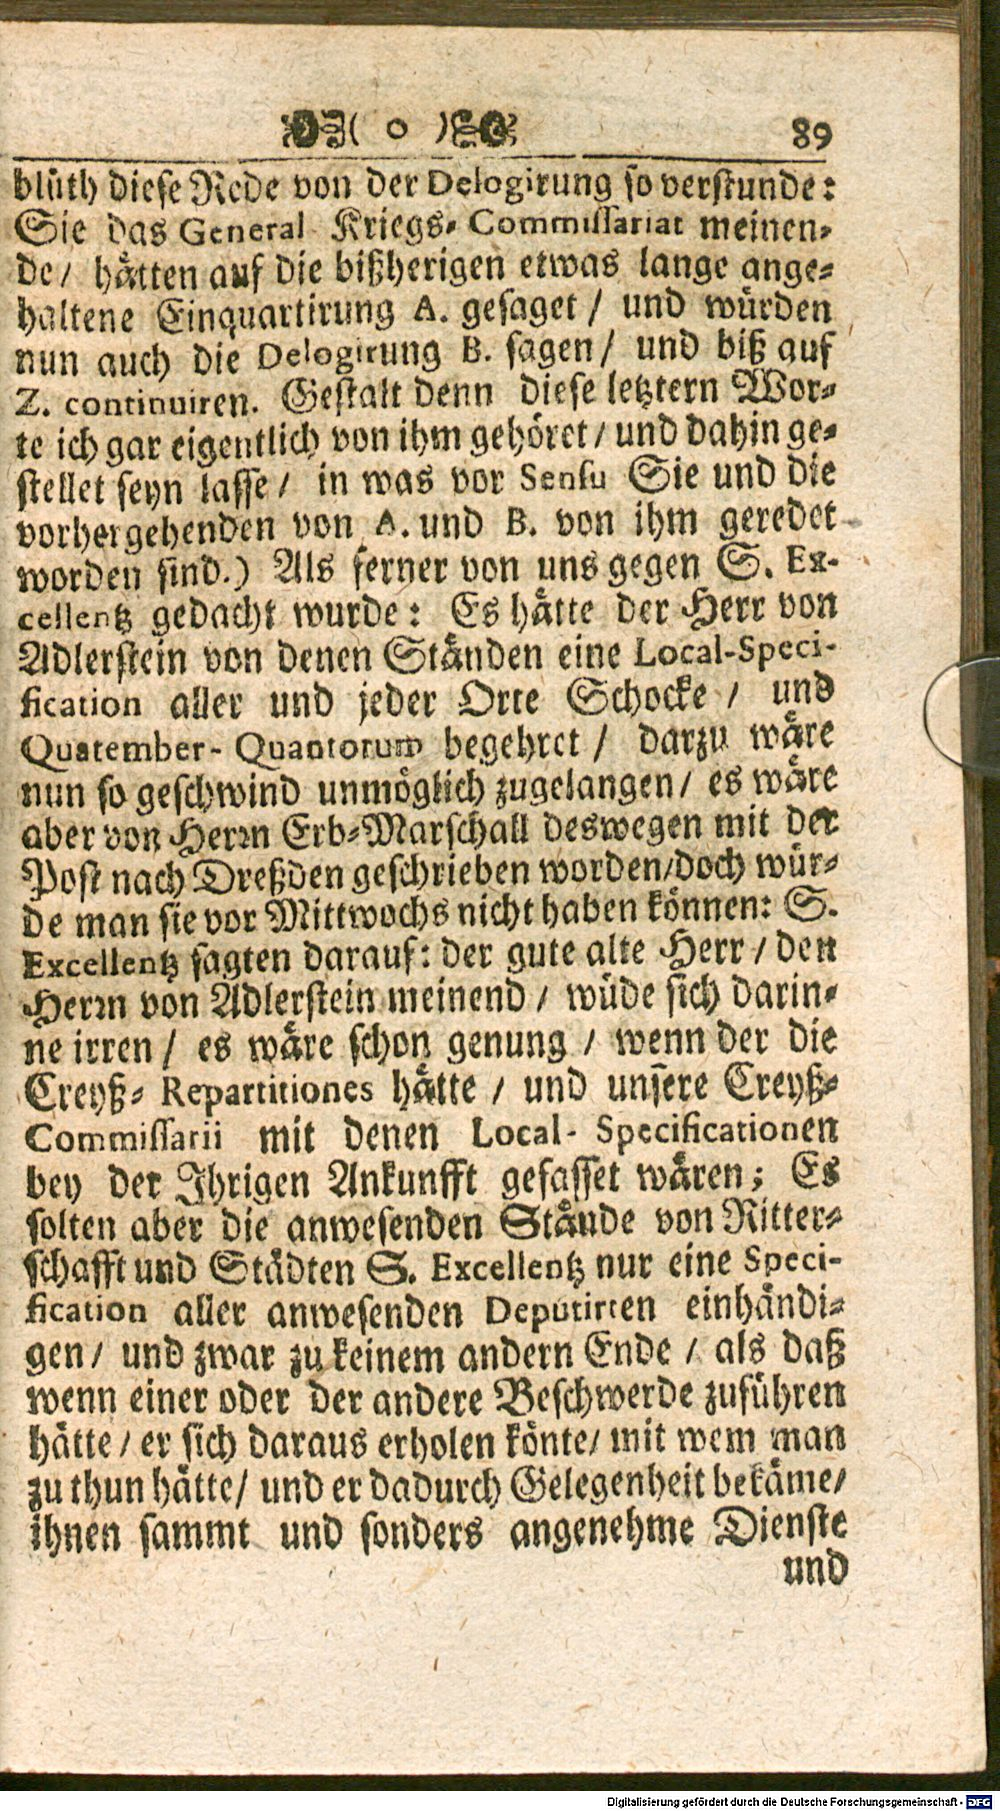 ( o ) 89
blüth diese Rede von der Delogirung so verstunde:
Sie das General Kriegs-Commissariat meinen-
de / hätten auf die bißherigen etwas lange ange-
haltene Einquartirung A. gesaget / und würden
nun auch die Delogirung B. sagen / und biß auf
Z. continuiren. Gestalt denn diese letztern Wor-
te ich gar eigentlich von ihm gehöret / und dahin ge-
stellet seyn lasse / in was vor Sensu Sie und die
vorhergehenden von A. und B. von ihm geredet
worden sind.) Als ferner von uns gegen S. Ex-
cellentz gedacht wurde: Es hätte der Herr von
Adlerstein von denen Ständen eine Local-Speci-
fication aller und jeder Orte Schocke / und
Quatember-Quantorum begehret / darzu wäre
nun so geschwind unmöglich zugelangen / es wäre
aber von Herrn Erb-Marschall deswegen mit der
Post nach Dreßden geschrieben worden/doch wür-
de man sie vor Mittwochs nicht haben können: S.
Excellentz sagten darauf: der gute alte Herr / den
Herrn von Adlerstein meinend / wüde sich darin-
ne irren / es wäre schon genung / wenn der die
Creyß-Repartitiones hätte / und unsere Creyß-
Commissarii mit denen Local-Specificationen
bey der Ihrigen Ankunfft gefasset wären; Es
solten aber die anwesenden Stände von Ritter-
schafft und Städten S. Excellentz nur eine Speci-
fication aller anwesenden Deputirten einhändi-
gen / und zwar zu keinem andern Ende / als daß
wenn einer oder der andere Beschwerde zuführen
hätte / er sich daraus erholen könte / mit wem man
zu thun hätte / und er dadurch Gelegenheit bekäme /
ihnen sammt und sonders angenehme Dienste
und
Digitalisierung gefördert durch die Deutsche Forschungsgemeinschaft - DFG